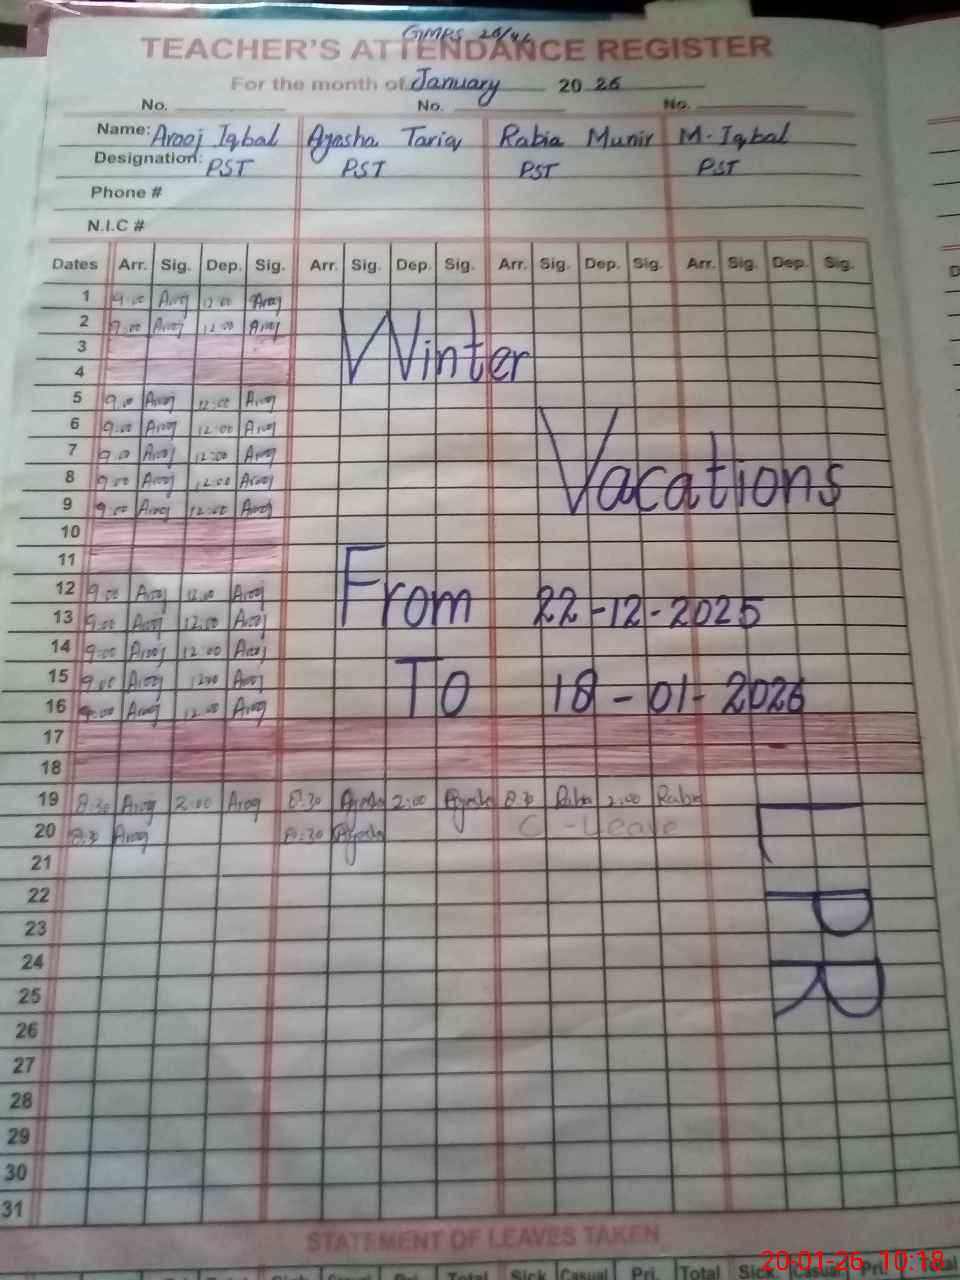 GMPS 26/46
TEACHER'S ATTENDANCE REGISTER
For the month of January 2026
No. No. No.
Name: Arooj Iqbal Ayesha Tariq Rabia Munir M. Iqbal
Designation: PST PST PST PST
Phone #
N.I.C #
Dates Arr. Sig. Dep. Sig. Arr. Sig. Dep. Sig. Arr. Sig. Dep. Sig. Arr. Sig. Dep. Sig.
1 9:00 Arooj 12:00 Arooj
2 9:00 Arooj 12:00 Arooj
3
4
Winter
5 9:00 Arooj 12:00 Arooj
6 9:00 Arooj 12:00 Arooj
7 9:00 Arooj 12:00 Arooj
8 9:00 Arooj 12:00 Arooj
Vacations
9 9:00 Arooj 12:00 Arooj
10
11
12 9:00 Arooj 12:00 Arooj
13 9:00 Arooj 12:00 Arooj
From 22-12-2025
14 9:00 Arooj 12:00 Arooj
15 9:00 Arooj 12:00 Arooj
16 9:00 Arooj 12:00 Arooj
To 18-01-2026
17
18
19 8:30 Arooj 2:00 Arooj 8:30 Ayesha 2:00 Ayesha 8:30 Rabia 2:00 Rabia
20 8:30 Arooj 8:30 Ayesha C-Leave
LPR
21
22
23
24
25
26
27
28
29
30
31
STATEMENT OF LEAVES TAKEN
Sick Casual Pri. Total Sick Casual Pri. Total
20-01-26 10:18